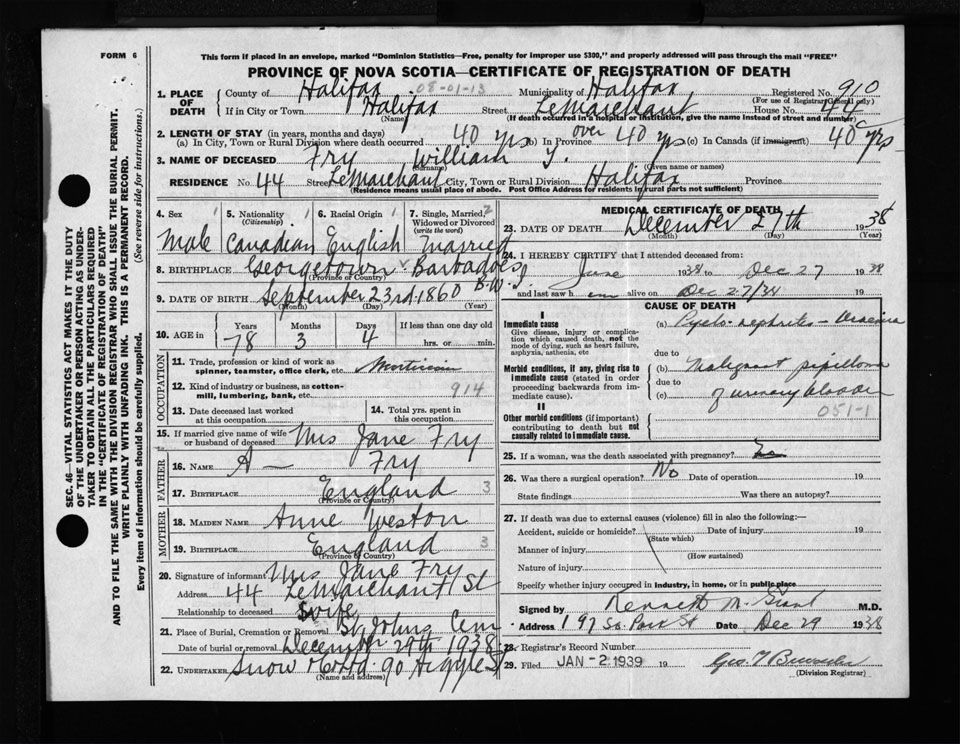 FORM 6
This form if placed in an envelope, marked "Dominion Statistics—Free, penalty for improper use $300," and properly addressed will pass through the mail "FREE"
PROVINCE OF NOVA SCOTIA—CERTIFICATE OF REGISTRATION OF DEATH
1. PLACE OF DEATH
County of Halifax 08-01-13 Municipality of Halifax Registered No. 910
(For use of Registrar General only)
If in City or Town Halifax Street LeMarchant House No. 44
(Name) (If death occurred in a hospital or institution, give the name instead of street and number)
2. LENGTH OF STAY (in years, months and days)
(a) In City, Town or Rural Division where death occurred 40 yrs (b) In Province over 40 yrs (c) In Canada (if immigrant) 40 yrs
3. NAME OF DECEASED Fry William J.
(Surname) (Given name or names)
RESIDENCE No. 44 Street LeMarchant City, Town or Rural Division Halifax Province
(Residence means usual place of abode. Post Office Address for residents in rural parts not sufficient)
4. Sex 1 5. Nationality 1 6. Racial Origin 1 7. Single, Married, 2
(Citizenship) Widowed or Divorced
(write the word)
Male Canadian English Married
8. BIRTHPLACE Georgetown Barbadoes B.W.I.
(Province or Country)
9. DATE OF BIRTH September 23rd 1860
(Month) (Day) (Year)
10. AGE in Years Months Days If less than one day old
78 3 4 hrs. or min.
OCCUPATION
11. Trade, profession or kind of work as
spinner, teamster, office clerk, etc. Mortician
12. Kind of industry or business, as cotton-
mill, lumbering, bank, etc. 914
13. Date deceased last worked at this occupation
14. Total yrs. spent in this occupation
15. If married give name of wife
or husband of deceased Mrs Jane Fry
FATHER
16. NAME A— Fry
17. BIRTHPLACE England 3
(Province or Country)
MOTHER
18. MAIDEN NAME Anne Weston
19. BIRTHPLACE England 3
(Province or Country)
20. Signature of informant Mrs Jane Fry
Address 44 LeMarchant St
Relationship to deceased wife
21. Place of Burial, Cremation or Removal St. Johns Cem
Date of burial or removal December 29th 1938
22. UNDERTAKER Snow & Co Ltd. 90 Argyle St
(Name and address)
MEDICAL CERTIFICATE OF DEATH
23. DATE OF DEATH December 27th 1938
(Month) (Day) (Year)
24. I HEREBY CERTIFY that I attended deceased from:
June 1938 to Dec 27 1938
and last saw him alive on Dec 27/38 19
CAUSE OF DEATH
I
Immediate cause
Give disease, injury or complication which caused death, not the mode of dying, such as heart failure, asphyxia, asthenia, etc
(a) Pyelo-nephritis - Uraemia
due to
Morbid conditions, if any, giving rise to immediate cause (stated in order proceeding backwards from immediate cause).
(b) Malignant papilloma
due to
(c) of urinary bladder
051-1
II
Other morbid conditions (if important) contributing to death but not causally related to immediate cause.
25. If a woman, was the death associated with pregnancy?
26. Was there a surgical operation? No Date of operation 19
State findings Was there an autopsy?
27. If death was due to external causes (violence) fill in also the following:—
Accident, suicide or homicide? Date of injury 19
(State which)
Manner of injury
(How sustained)
Nature of injury
Specify whether injury occurred in industry, in home, or in public place
Signed by Kenneth M. Grant M.D.
Address 197 So. Park St Date Dec 29 1938
28. Registrar's Record Number
29. Filed JAN - 2 1939 19
(Division Registrar)
SEC. 46—VITAL STATISTICS ACT MAKES IT THE DUTY
OF THE UNDERTAKER OR PERSON ACTING AS UNDER-
TAKER TO OBTAIN ALL THE PARTICULARS REQUIRED
IN THE "CERTIFICATE OF REGISTRATION OF DEATH"
AND TO FILE THE SAME WITH THE DIVISION REGISTRAR WHO SHALL ISSUE THE BURIAL PERMIT.
WRITE PLAINLY WITH UNFADING INK. THIS IS A PERMANENT RECORD.
Every item of information should be carefully supplied. (See reverse side for instructions.)